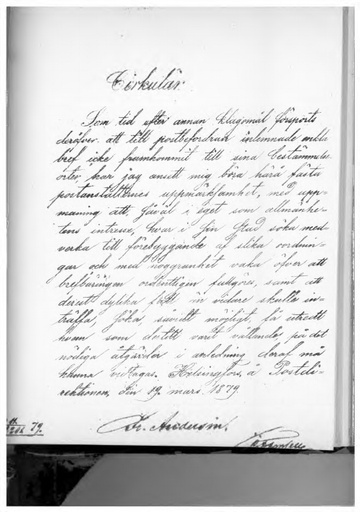 Cirkulär.
Som tid efter annan klagomål försports
deröfver, att till postbefordran inlemnade enkla
bref icke framkommit till sina bestämmelse
orter, har jag ansett mig böra härå fästa
postanstalternes uppmärksamhet, med upp-
maning att, såväl i eget som allmänhe-
tens intresse, hvar i sin stad söka med-
verka till förebyggande af slika oordnin-
gar och med noggranhet vaka öfver att
brefbäringen ordentligen fullgöres, samt att
derest dylika fall än vidare skulle in-
träffa, söka såvidt möjligt få utredt
hvem som dertill varit vållande, på det
nödiga åtgärder i anledning deraf må
kunna vidtagas. Helsingfors, å Postdi-
rektionen, den 19 mars 1879.
79